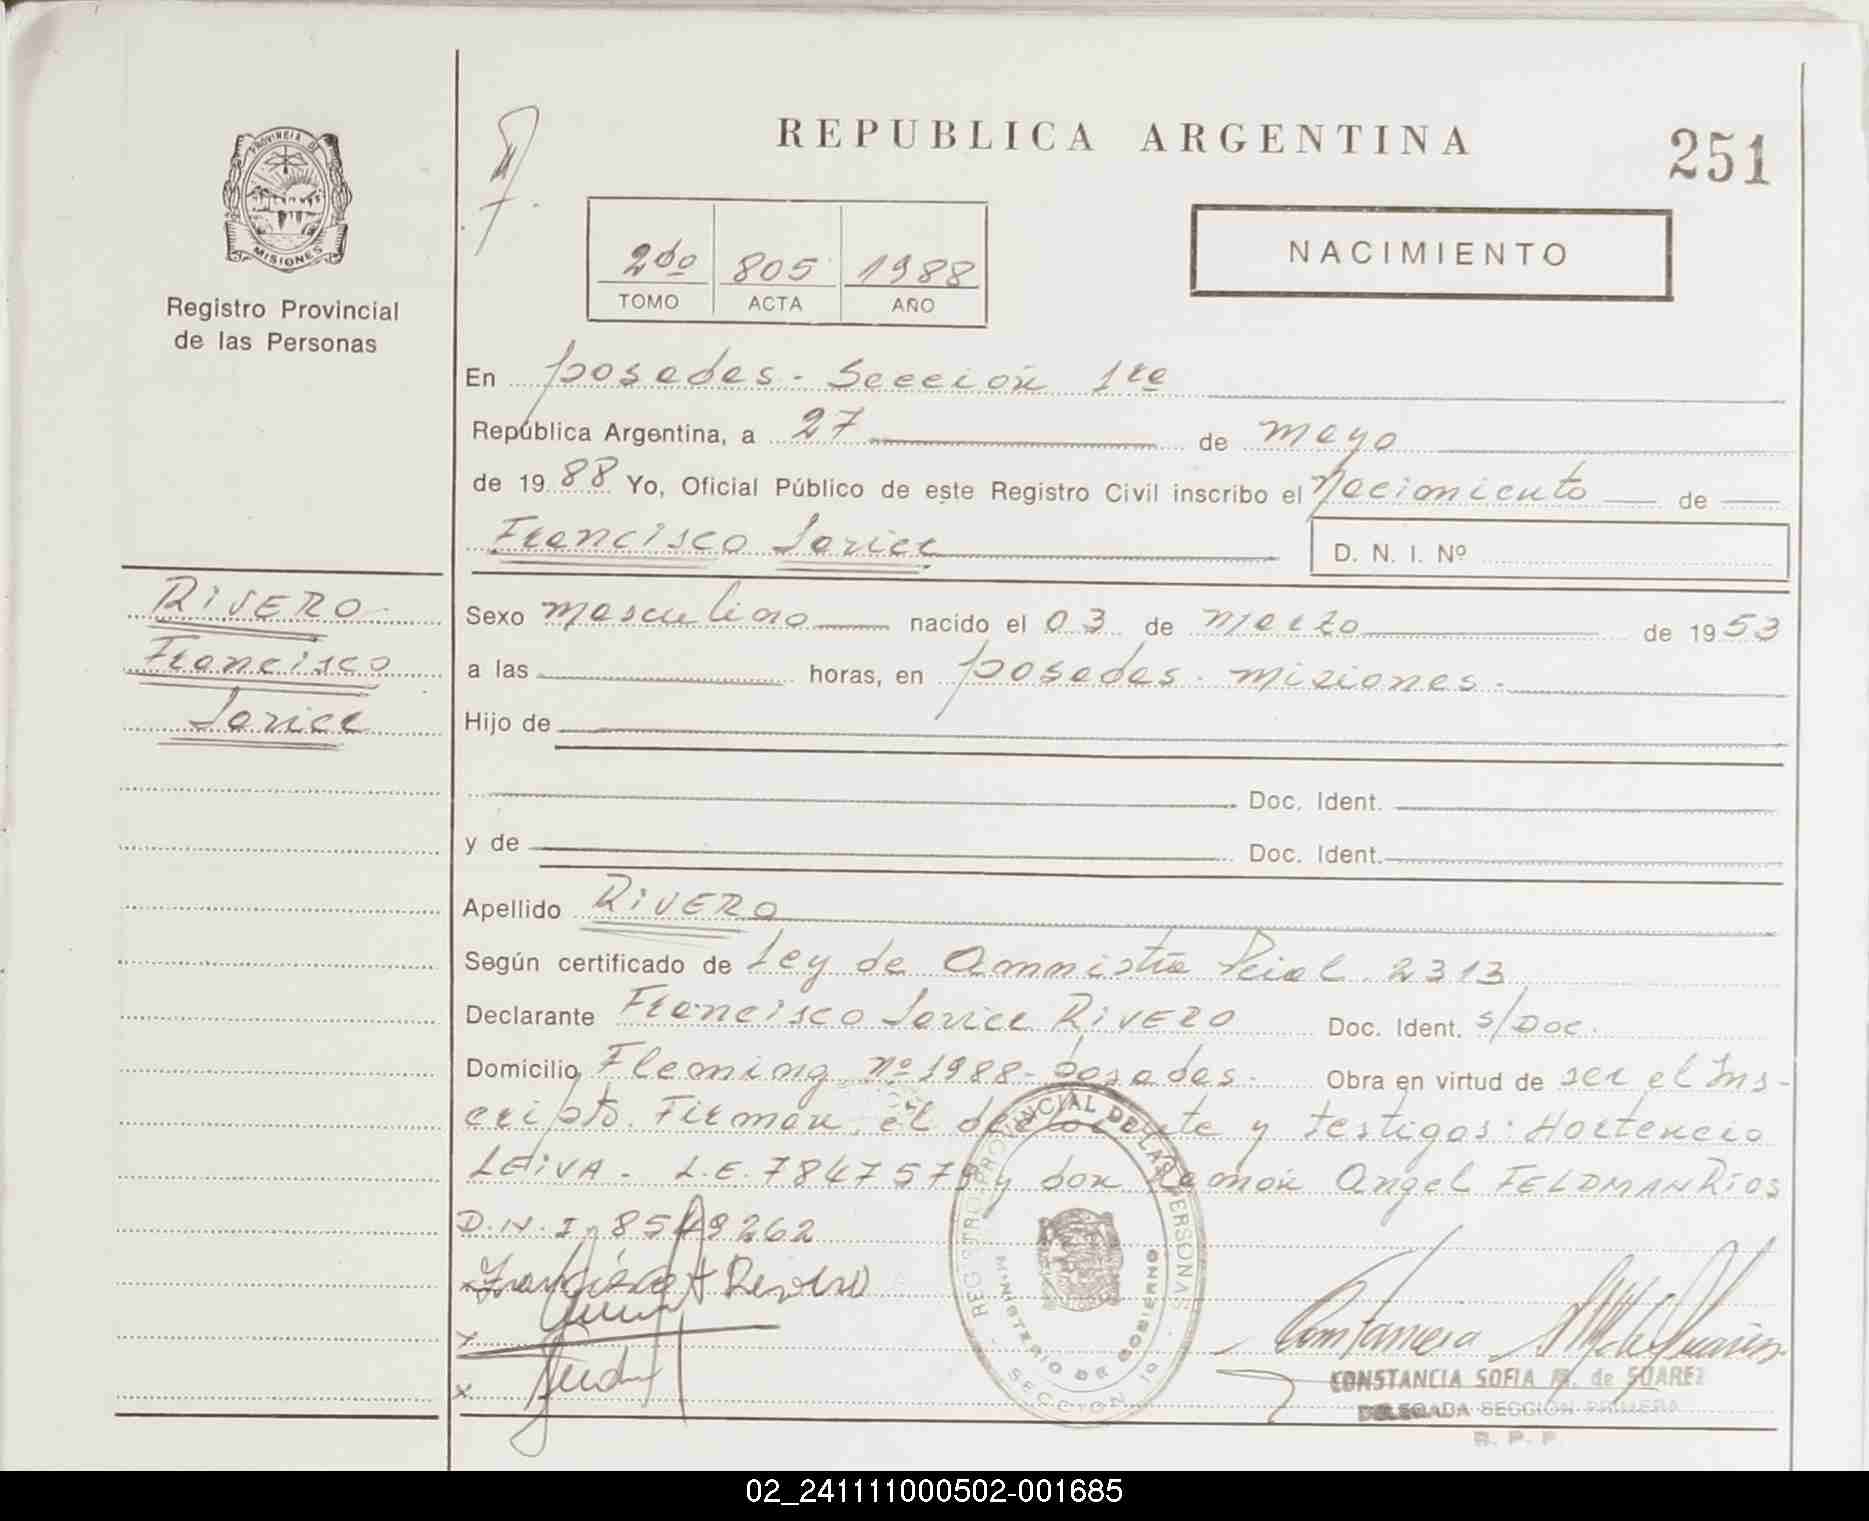 REPUBLICA ARGENTINA
251
PROVINCIA DE
MISIONES
Registro Provincial
de las Personas
2do 805 1988
TOMO ACTA AÑO
NACIMIENTO
En Posadas - Sección 1ra
República Argentina, a 27 de mayo
de 19 88 Yo, Oficial Público de este Registro Civil inscribo el Nacimiento de
Francisco Javier
D. N. I. Nº
RIVERO
Francisco
Javier
Sexo masculino nacido el 03 de marzo de 19 53
a las horas, en Posadas - Misiones -
Hijo de
Doc. Ident.
y de Doc. Ident.
Apellido RIVERO
Según certificado de Ley de Amnistía 2313
Declarante Francisco Javier RIVERO Doc. Ident. s/Doc.
Domicilio Fleming nº 1988 - Posadas - Obra en virtud de ser el Ins-
cripto. Firman, el declarante y testigos: Hortencio
LEIVA - L.E. 7847579 y don Ramón Angel FELDMAN Ríos
D.N.I. 8549262
REGISTRO PROVINCIAL DE LAS PERSONAS
MINISTERIO DE GOBIERNO
SECCION 1a
CONSTANCIA SOFIA M. de SUAREZ
DELEGADA SECCION PRIMERA
R. P. P.
02_241111000502-001685